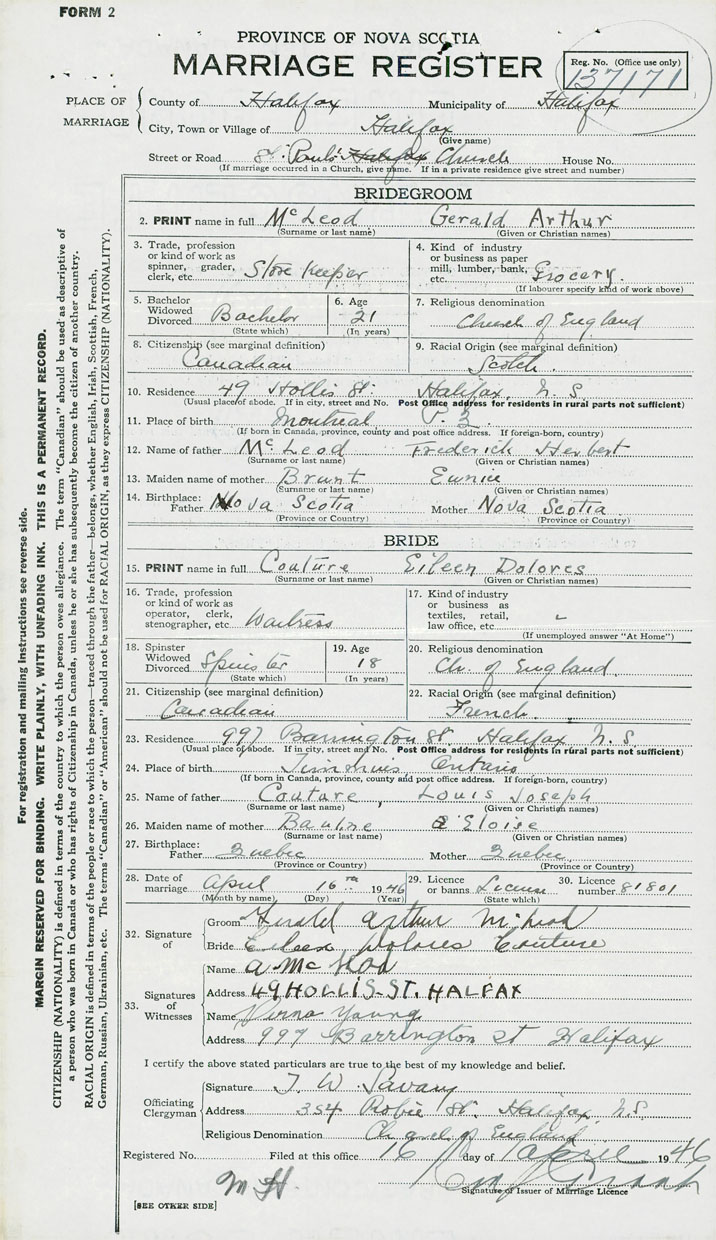 FORM 2
PROVINCE OF NOVA SCOTIA
MARRIAGE REGISTER
Reg. No. (Office use only)
137171
PLACE OF MARRIAGE
County of Halifax Municipality of Halifax
City, Town or Village of Halifax
(Give name)
Street or Road St. Paul's Halifax Church House No.
(If marriage occurred in a Church, give name. If in a private residence give street and number)
BRIDEGROOM
2. PRINT name in full McLeod Gerald Arthur
(Surname or last name) (Given or Christian names)
3. Trade, profession or kind of work as spinner, grader, clerk, etc. Store Keeper
4. Kind of industry or business as paper mill, lumber, bank, etc. Grocery.
(If labourer specify kind of work above)
5. Bachelor Widowed Divorced Bachelor
(State which)
6. Age 21
(In years)
7. Religious denomination
Church of England
8. Citizenship (see marginal definition)
Canadian
9. Racial Origin (see marginal definition)
Scotch.
10. Residence 49 Hollis St. Halifax, N.S.
(Usual place of abode. If in city, street and No. Post Office address for residents in rural parts not sufficient)
11. Place of birth Montreal P.Q.
(If born in Canada, province, county and post office address. If foreign-born, country)
12. Name of father McLeod Frederick Herbert
(Surname or last name) (Given or Christian names)
13. Maiden name of mother Brunt Eunice
(Surname or last name) (Given or Christian names)
14. Birthplace: Father Nova Scotia Mother Nova Scotia
(Province or Country) (Province or Country)
BRIDE
15. PRINT name in full Couture Eileen Dolores
(Surname or last name) (Given or Christian names)
16. Trade, profession or kind of work as operator, clerk, stenographer, etc. Waitress
17. Kind of industry or business as textiles, retail, law office, etc.
(If unemployed answer "At Home")
18. Spinster Widowed Divorced Spinster
(State which)
19. Age 18
(In years)
20. Religious denomination
Ch. of England
21. Citizenship (see marginal definition)
Canadian
22. Racial Origin (see marginal definition)
French.
23. Residence 997 Barrington St. Halifax N.S.
(Usual place of abode. If in city, street and No. Post Office address for residents in rural parts not sufficient)
24. Place of birth Timmins Ontario
(If born in Canada, province, county and post office address. If foreign-born, country)
25. Name of father Couture, Louis Joseph
(Surname or last name) (Given or Christian names)
26. Maiden name of mother Eloise
(Surname or last name) (Given or Christian names)
27. Birthplace: Father Quebec Mother Quebec
(Province or Country) (Province or Country)
28. Date of marriage April 16 1946
(Month by name) (Day) (Year)
29. Licence or banns License
(State which)
30. Licence number 81801
32. Signature of
Groom Gerald Arthur McLeod
Bride Eileen Dolores Couture
33. Signatures of Witnesses
Name A McLeod
Address 49 HOLLIS-ST. HALFAX
Name Verna Young
Address 997 Barrington St Halifax
I certify the above stated particulars are true to the best of my knowledge and belief.
Officiating Clergyman
Signature T. W. Savary
Address 354 Robie St. Halifax, N.S.
Religious Denomination Church of England
Registered No. Filed at this office 16 day of April 1946
M H.
Signature of Issuer of Marriage Licence
[SEE OTHER SIDE]
For registration and mailing instructions see reverse side.
MARGIN RESERVED FOR BINDING. WRITE PLAINLY, WITH UNFADING INK. THIS IS A PERMANENT RECORD.
CITIZENSHIP (NATIONALITY) is defined in terms of the country to which the person owes allegiance. The term "Canadian" should be used as descriptive of
a person who was born in Canada or who has rights of Citizenship in Canada, unless he or she has subsequently become the citizen of another country.
RACIAL ORIGIN is defined in terms of the people or race to which the person—traced through the father—belongs, whether English, Irish, Scottish, French,
German, Russian, Ukrainian, etc. The terms "Canadian" or "American" should not be used for RACIAL ORIGIN, as they express CITIZENSHIP (NATIONALITY).